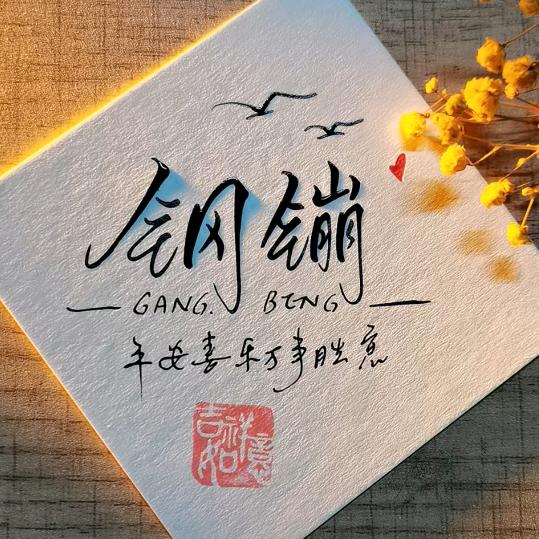 钢镚
GANG. BENG
平安喜乐万事胜意
吉祥如意